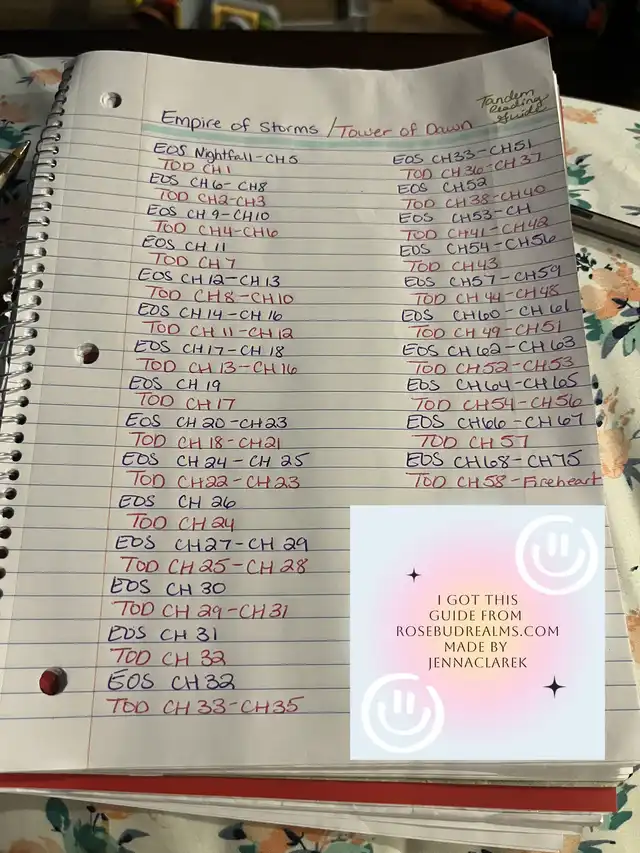 Tandem
Reading
Guide
Empire of Storms / Tower of Dawn
EOS Nightfall-CH5
TOD CH1
EOS CH6-CH8
TOD CH2-CH3
EOS CH 9-CH10
TOD CH4-CH6
EOS CH 11
TOD CH 7
EOS CH12-CH13
TOD CH8-CH10
EOS CH14-CH 16
TOD CH 11-CH12
EOS CH17-CH 18
TOD CH 13-CH16
EOS CH 19
TOD CH17
EOS CH 20-CH23
TOD CH 18-CH21
EOS CH 24-CH 25
TOD CH22-CH23
EOS CH 26
TOD CH 24
EOS CH27-CH 29
TOD CH 25-CH28
EOS CH 30
TOD CH 29-CH31
EOS CH 31
TOD CH 32
EOS CH32
TOD CH 33-CH35
EOS CH33-CH51
TOD CH 36-CH 37
EOS CH52
TOD CH38-CH40
EOS CH53-CH
TOD CH41-CH42
EOS CH54-CH56
TOD CH43
EOS CH57-CH59
TOD CH 44-CH48
EOS CH60-CH 61
TOD CH 49-CH51
EOS CH62-CH63
TOD CH52-CH53
EOS CH64-CH65
TOD CH54-CH56
EOS CH66-CH67
TOD CH 57
EOS CH68-CH75
TOD CH 58-Fireheart
I GOT THIS
GUIDE FROM
ROSEBUDREALMS.COM
MADE BY
JENNACLAREK